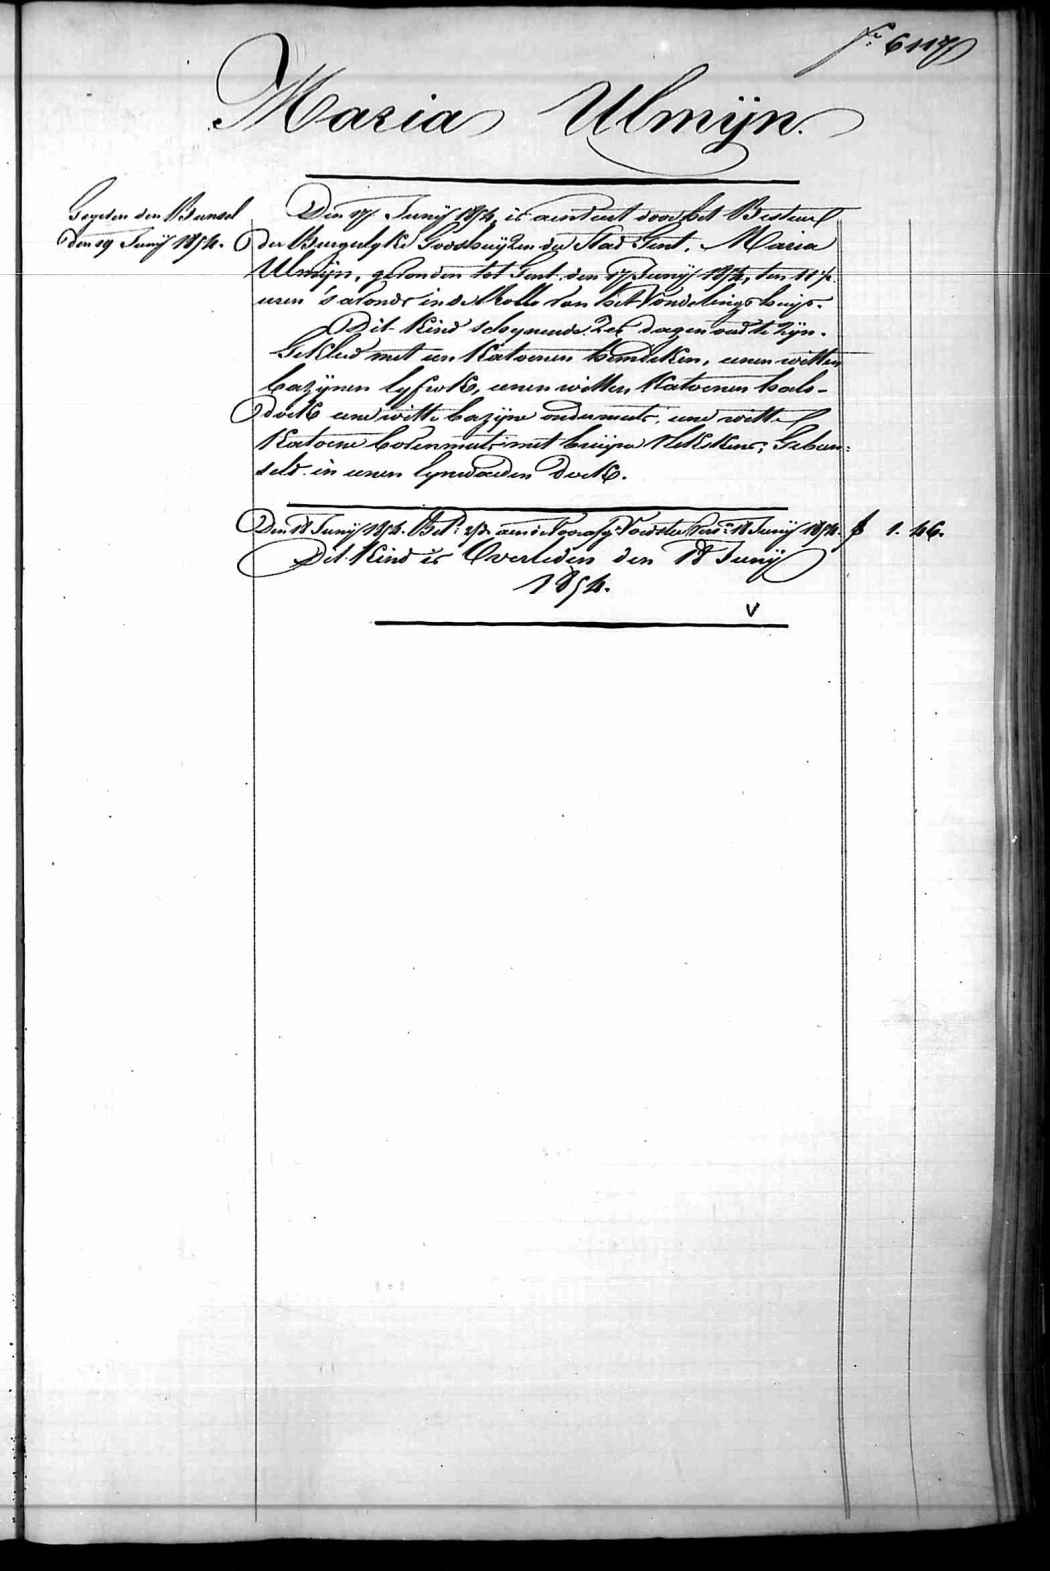 f.° 6117
Maria Ulmijn.
Gegeven den Bunsel
den 19 Junij 1854.
Den 17 Junij 1854 is aenveert door het Bestuer
der Burgerlyke Godshuyzen der Stad Gent, Maria
Ulmijn, gevonden tot Gent den 17 Junij 1854, ten 11 1/2
uren 's avonds in de Rolle van het Vondelingshuys.
Dit Kind schynende zes dagen oud te zijn.
Gekleed met een Katoenen hemdeken, eenen witten
bazijnen lyfrok, eenen witten Katoenen hals-
doek eene witte bazijne ondermuts, eene witte
Katoene bovenmuts met bruyne vlekskens, Gebun-
seld in eenen lynwaeden doek.
Den 18 Junij 1854. Bet. aen de Voedster 18 Junij 1854. f 1. 46.
Dit Kind is Overleden den 18 Junij
1854.
V